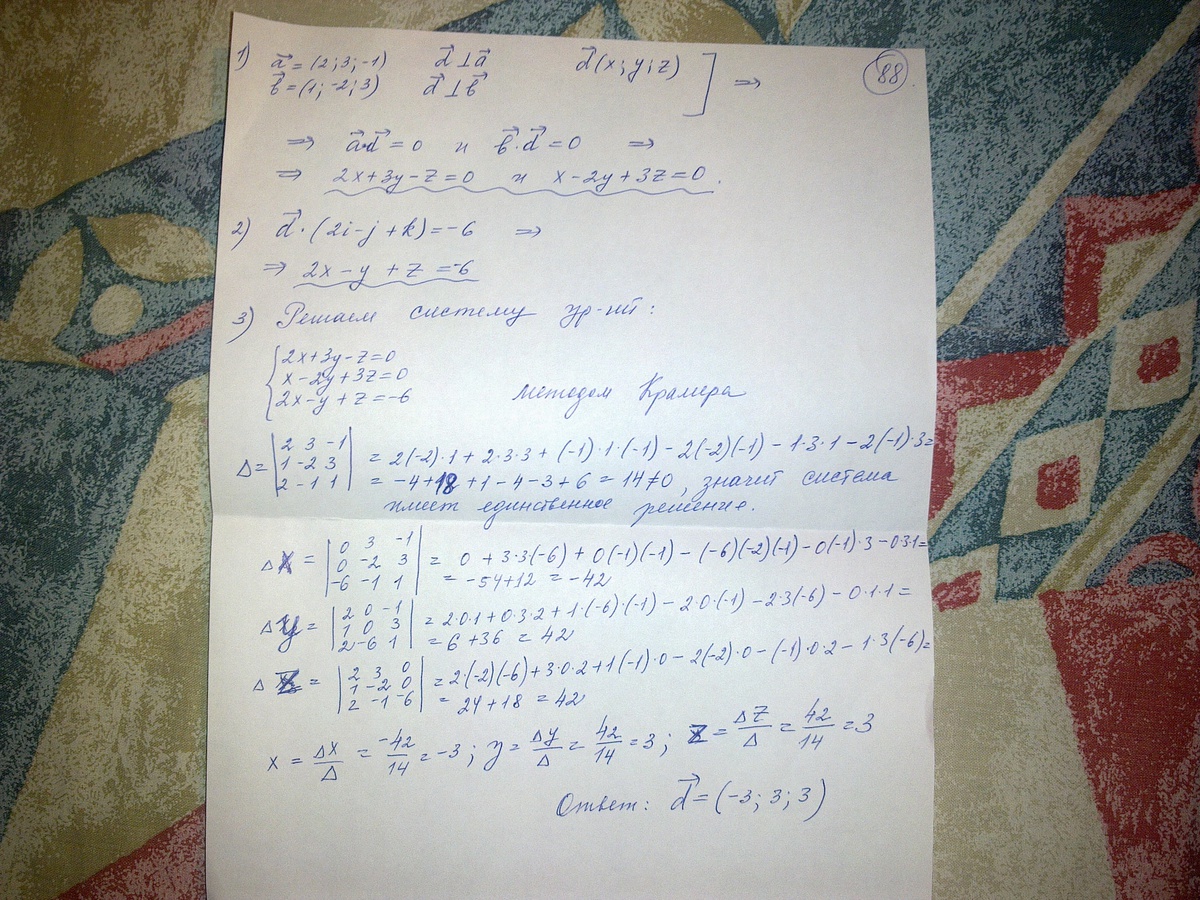 1) a⃗ = (2; 3; -1) d⃗ ⊥ a⃗ d⃗ (x; y; z) ] ⇒ 88
b⃗ = (1; -2; 3) d⃗ ⊥ b⃗
⇒ a⃗·d⃗ = 0 и b⃗·d⃗ = 0 ⇒
⇒ 2x+3y-z=0 и x-2y+3z=0.
2) d⃗·(2i-j+k)=-6 ⇒
⇒ 2x-y+z=-6
3) Решаем систему ур-ий:
{ 2x+3y-z=0
x-2y+3z=0
2x-y+z=-6 методом Крамера
Δ = | 2 3 -1 | = 2(-2)·1 + 2·3·3 + (-1)·1·(-1) - 2(-2)(-1) - 1·3·1 - 2(-1)·3 =
| 1 -2 3 |
| 2 -1 1 | = -4+18+1-4-3+6 = 14≠0, значит система
имеет единственное решение.
Δx = | 0 3 -1 | = 0 + 3·3(-6) + 0(-1)(-1) - (-6)(-2)(-1) - 0(-1)·3 - 0·3·1 =
| 0 -2 3 |
| -6 -1 1 | = -54+12 = -42
Δy = | 2 0 -1 | = 2·0·1 + 0·3·2 + 1·(-6)·(-1) - 2·0·(-1) - 2·3(-6) - 0·1·1 =
| 1 0 3 |
| 2 -6 1 | = 6+36 = 42
Δz = | 2 3 0 | = 2·(-2)(-6) + 3·0·2 + 1(-1)·0 - 2(-2)·0 - (-1)·0·2 - 1·3(-6) =
| 1 -2 0 |
| 2 -1 -6 | = 24+18 = 42
x = Δx/Δ = -42/14 = -3; y = Δy/Δ = 42/14 = 3; z = Δz/Δ = 42/14 = 3
Ответ: d⃗ = (-3; 3; 3)